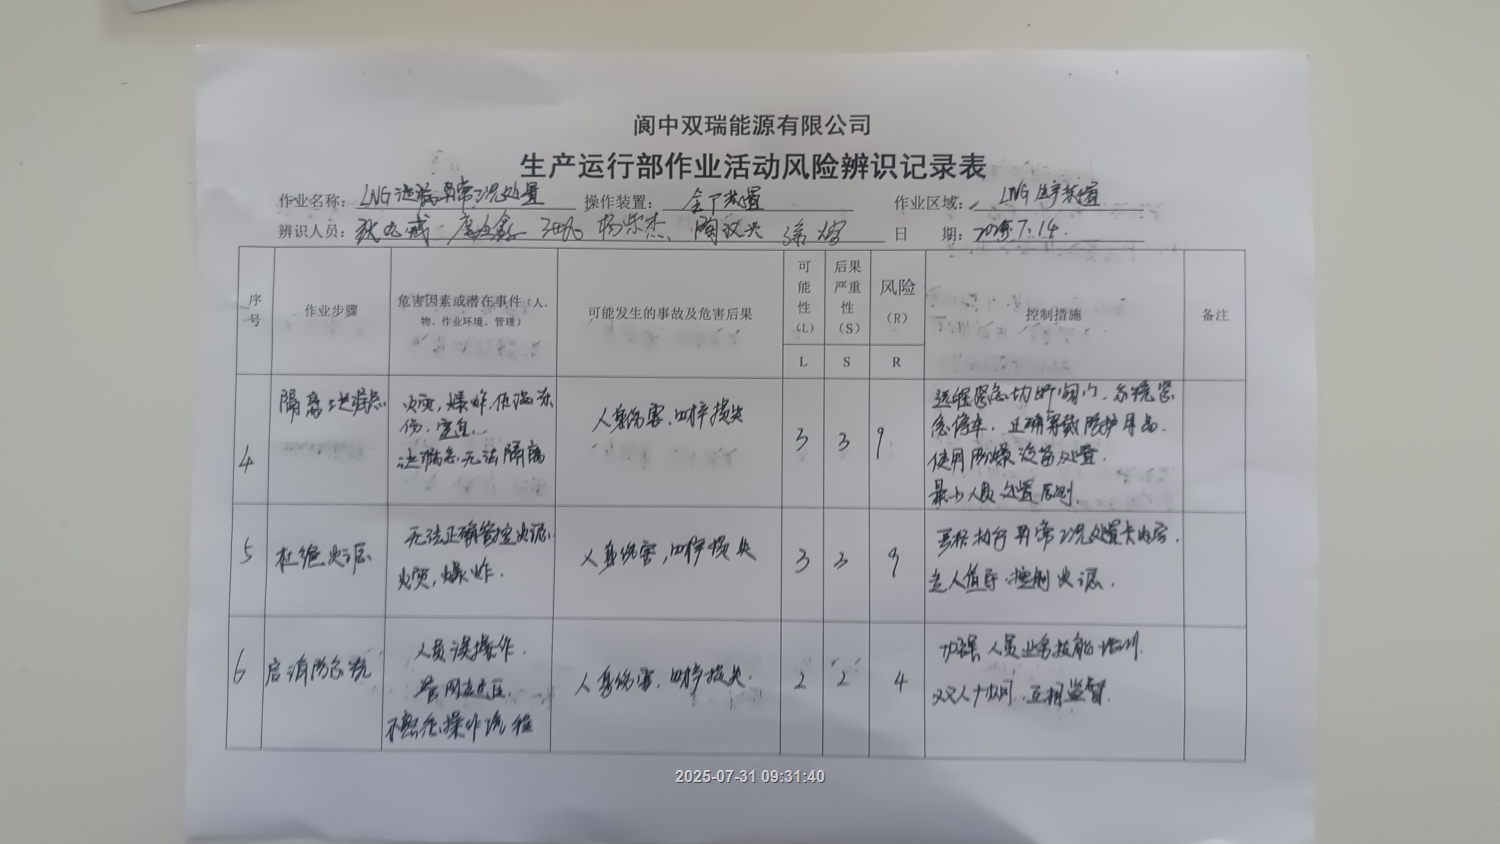 阆中双瑞能源有限公司
生产运行部作业活动风险辨识记录表
作业名称: LNG泄漏异常工况处置 操作装置: 全厂装置 作业区域: LNG生产装置
辨识人员: 杨荣杰、 日 期: 2025.7.14.
序号 作业步骤 危害因素或潜在事件(人、物、作业环境、管理) 可能发生的事故及危害后果 可能性(L) 后果严重性(S) 风险(R) 控制措施 备注
L S R
4 隔离泄漏点 火灾,爆炸,低温冻伤,窒息. 泄漏点无法隔离 人身伤害,财产损失 3 3 9 远程紧急切断阀门,系统紧急停车,正确穿戴防护用品. 使用防爆设备处置. 最少人员处置原则.
5 杜绝火源 无法正确管控火源. 火灾,爆炸. 人身伤害,财产损失 3 3 9 严格执行异常工况处置卡内容. 专人值守,控制火源.
6 启消防系统 人员误操作. 管网未达压. 不熟悉操作流程 人身伤害,财产损失. 2 2 4 加强人员业务技能培训. 双人协同,互相监督.
2025-07-31 09:31:40